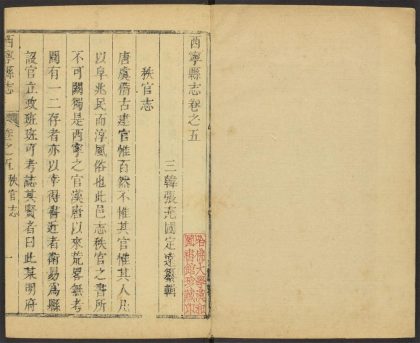 西寧縣志卷之五
三韓張
國定
纂輯
秩官志
唐虞稽古建官惟百然不惟其官惟其人凡
以阜兆民而淳風俗也此邑志秩官之書所
不可闕獨是西寧之官漢唐以來荒畧無考
間有一二存者亦以幸得書近者衛易為縣
設官立政班班可考誌其賢者曰此某明府
西寧縣志
卷之五秩官志
一
哈佛大學漢和
圖書館珍藏印